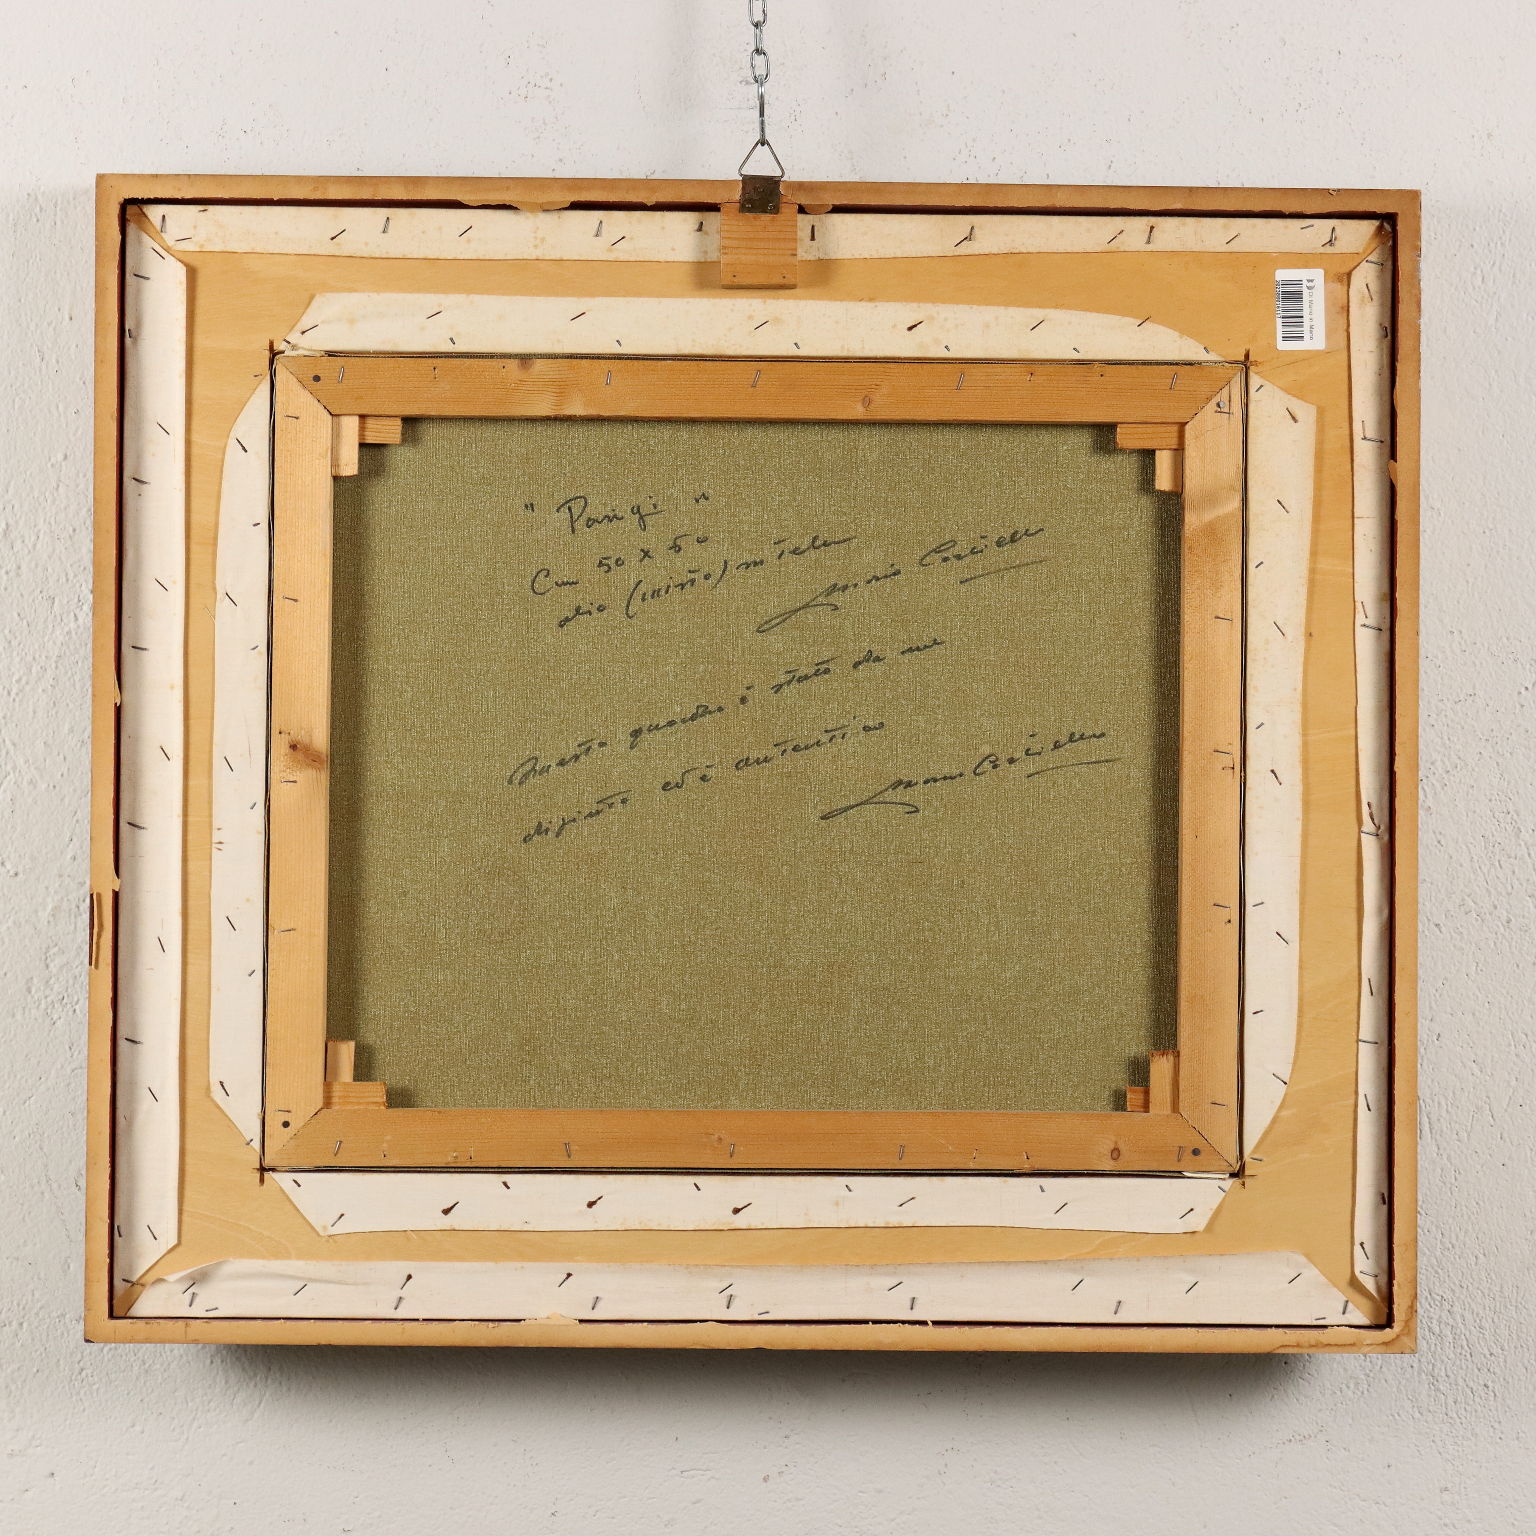 " Parigi "
Cm 50 x 60
olio (misto) su tela
Mario
Questo quadro è stato da me
dipinto ed è autentico
Mario
Di Mano in Mano